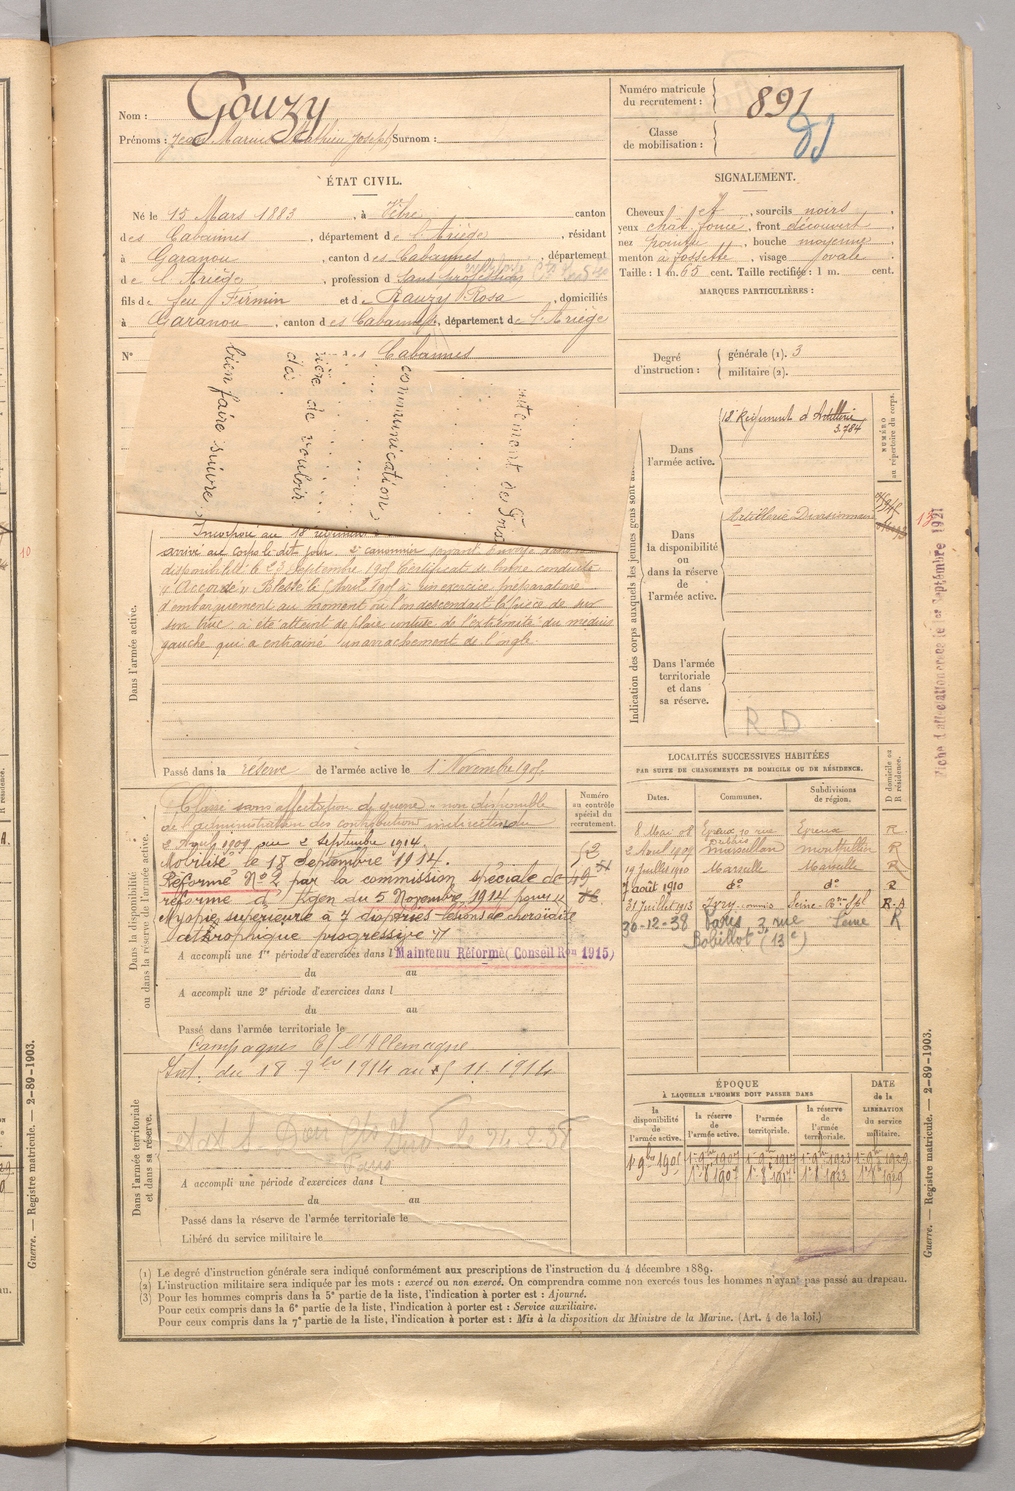 Nom : Gouzy
Prénoms : Jean Marius Mathieu Joseph Surnom :
Numéro matricule du recrutement : 891
Classe de mobilisation :
ÉTAT CIVIL.
Né le 15 Mars 1883, à Vèbre canton
des Cabannes, département de l'Ariège, résidant
à Garanou, canton des Cabannes, département
de l'Ariège, profession de sans profession
fils de feu Firmin et de Rauzy Rosa, domiciliés
à Garanou, canton des Cabannes, département de l'Ariège
N° Cabannes
SIGNALEMENT.
Cheveux, sourcils noirs,
yeux chât. foncé, front découvert,
nez pointu, bouche moyenne,
menton à fossette, visage ovale.
Taille : 1 m. 65 cent. Taille rectifiée : 1 m. cent.
MARQUES PARTICULIÈRES :
Degré d'instruction : générale (1). 3
militaire (2).
bien faire suivre
de vouloir
communication
Indication des corps auxquels les jeunes gens sont
Dans l'armée active.
18e Régiment d'Artillerie
3.784
NUMÉRO au répertoire du corps.
Dans la disponibilité ou dans la réserve de l'armée active.
Artillerie Divisionnaire
Dans l'armée territoriale et dans sa réserve.
R D
Fiche d'allocation créée le 1er Septembre 1921
Dans l'armée active.
Incorporé au 18e régiment
arrivé au corps le dit jour, 2e canonnier
disponibilité le Septembre 1905 Certificat de bonne conduite
"Accordé". Blessé le Avril 1905 à un exercice préparatoire
d'embarquement au moment où l'on descendait la pièce de sur
son truc, a été atteint de plaie contuse de l'extrémité du médius
gauche qui a entrainé l'arrachement de l'ongle.
Passé dans la réserve de l'armée active le 1 Novembre 1905.
Dans la disponibilité ou dans la réserve de l'armée active.
Classé sans affectation de guerre "non disponible"
de l'administration des contributions indirectes du
2 Avril 1909 au 2 septembre 1914.
Mobilisé le 18 Septembre 1914.
Réformé N° 2 par la commission spéciale de
réforme d'Agen du 5 Novembre 1914 pour "
Myopie supérieure à 7 dioptries - lésions de choroïdite
atrophique progressive "
A accompli une 1re période d'exercices dans l Maintenu Réformé (Conseil Ron 1915)
du au
A accompli une 2e période d'exercices dans l
du au
Passé dans l'armée territoriale le
Numéro au contrôle spécial du recrutement.
Campagnes C/ l'Allemagne
Int. du 18 7bre 1914 au 5 11 1914
LOCALITÉS SUCCESSIVES HABITÉES
PAR SUITE DE CHANGEMENTS DE DOMICILE OU DE RÉSIDENCE.
Dates. Communes. Subdivisions de région. D domicile ou R résidence.
8 Mai 08 Evreux 10 rue Evreux R.
2 Avril 1909 Marseillan Montpellier R
19 Juillet 1910 Marseille Marseille R
7 août 1910 do do R
31 Juillet 1913 Ivry Seine R.D
30-12-38 Paris 3, rue Bobillot (13e) Seine R
Dans l'armée territoriale et dans sa réserve.
A accompli une période d'exercices dans l
du au
Passé dans la réserve de l'armée territoriale le
Libéré du service militaire le
ÉPOQUE
À LAQUELLE L'HOMME DOIT PASSER DANS
la disponibilité de l'armée active. la réserve de l'armée active. l'armée territoriale. la réserve de l'armée territoriale. DATE de la LIBÉRATION du service militaire.
1er 9bre 1907 1er 9bre 1917 1er 9bre 1923 1er 9bre 1929
1er 8 1907 1er 8 1917 1er 8 1923 1er 8 1929
(1) Le degré d'instruction générale sera indiqué conformément aux prescriptions de l'instruction du 4 décembre 1889.
(2) L'instruction militaire sera indiquée par les mots : exercé ou non exercé. On comprendra comme non exercés tous les hommes n'ayant pas passé au drapeau.
(3) Pour les hommes compris dans la 5e partie de la liste, l'indication à porter est : Ajourné.
Pour ceux compris dans la 6e partie de la liste, l'indication à porter est : Service auxiliaire.
Pour ceux compris dans la 7e partie de la liste, l'indication à porter est : Mis à la disposition du Ministre de la Marine. (Art. 4 de la loi.)
Guerre. — Registre matricule. — 2-89-1903.
Guerre. — Registre matricule. — 2-89-1903.